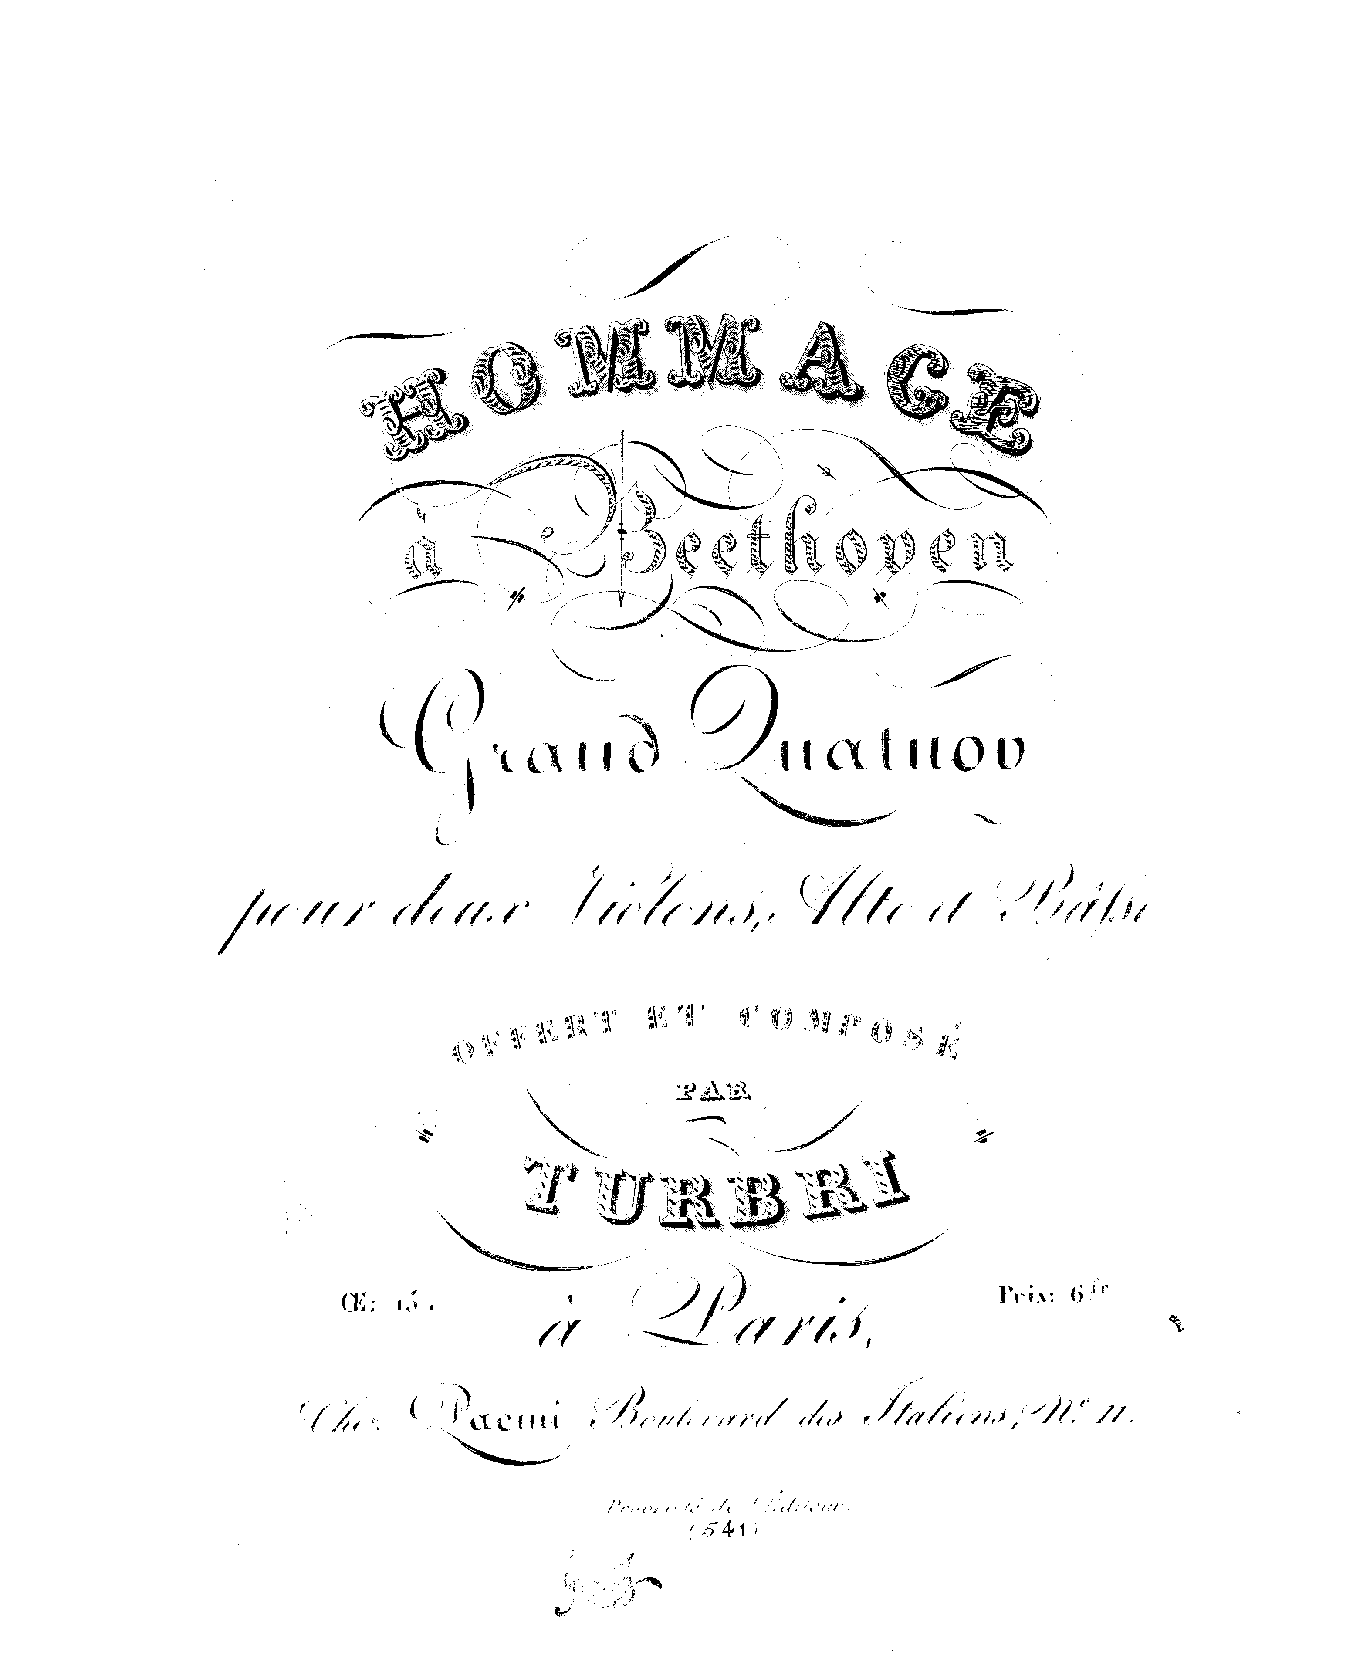 HOMMAGE
à Beethoven
Grand Quatuor
pour deux Violons, Alto et Basse
OFFERT ET COMPOSÉ
PAR
TURBRI
Œ: 15. Prix: 6 fr
à Paris,
Chez Pacini Boulevard des Italiens, N.º 11.
Propriété de l'Éditeur.
(541)